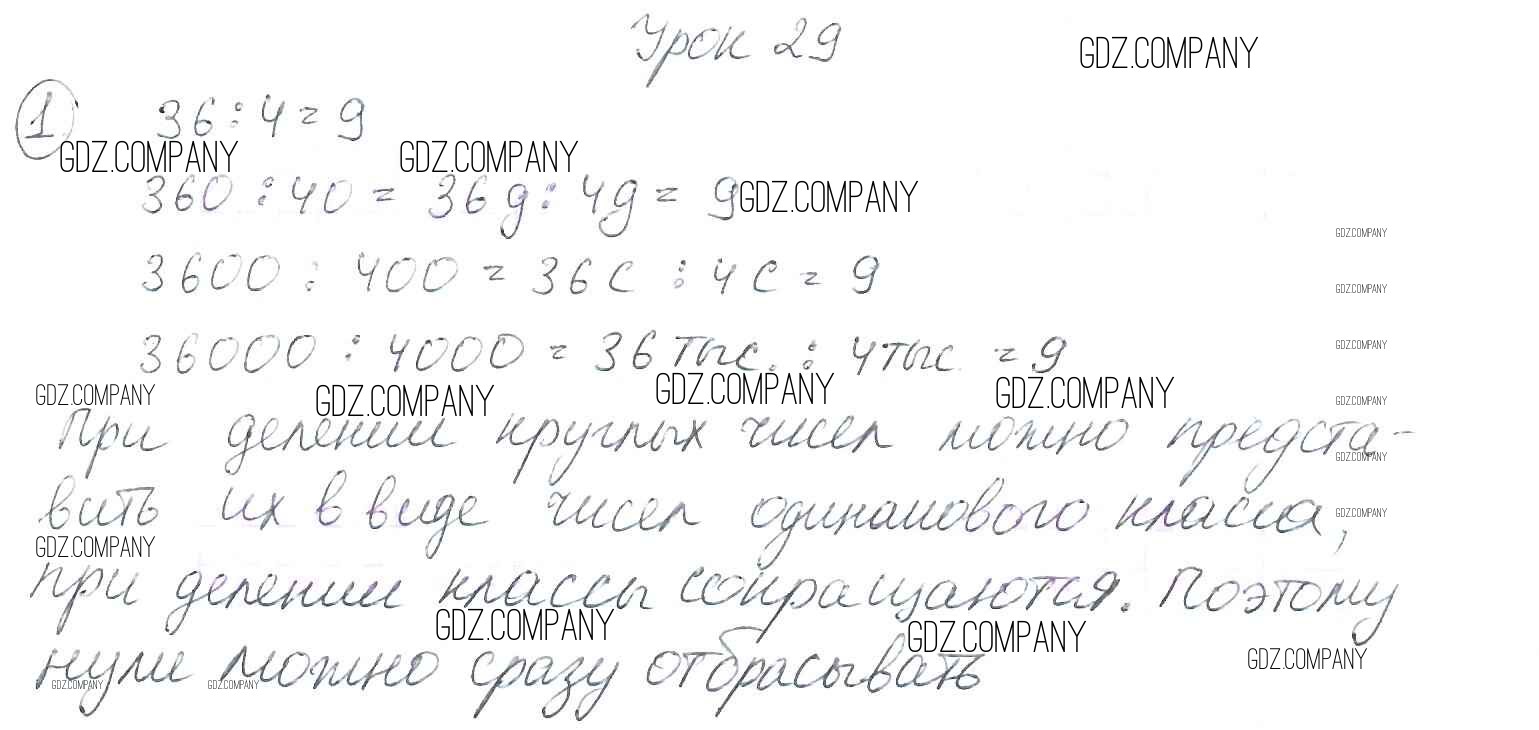 Урок 29
GDZ.COMPANY
1 36:4=9
GDZ.COMPANY GDZ.COMPANY
360:40 = 36д:4д = 9
GDZ.COMPANY
GDZ.COMPANY
3600 : 400 = 36с : 4с = 9
GDZ.COMPANY
36000 : 4000 = 36 тыс. : 4 тыс. = 9
GDZ.COMPANY
GDZ.COMPANY GDZ.COMPANY GDZ.COMPANY GDZ.COMPANY GDZ.COMPANY
При делении круглых чисел можно предста-
GDZ.COMPANY
вить их в виде чисел одинакового класса,
GDZ.COMPANY
GDZ.COMPANY
при делении классы сокращаются. Поэтому
GDZ.COMPANY GDZ.COMPANY GDZ.COMPANY
нули можно сразу отбрасывать
GDZ.COMPANY GDZ.COMPANY